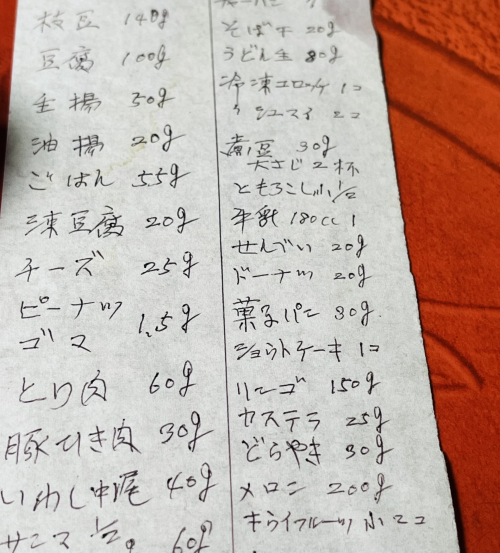 枝豆 140g
豆腐 100g
生揚 50g
油揚 20g
ごはん 55g
凍豆腐 20g
チーズ 25g
ピーナツ
ゴマ 1.5g
とり肉 60g
豚ひき肉 30g
いわし中1尾 40g
サンマ 1/2 60g
そば干 20g
うどん生 80g
冷凍コロッケ 1コ
〃 シュ 2コ
煮豆 30g
大さじ2杯
ともろこし小1/2
牛乳 180cc 1
せんべい 20g
ドーナツ 20g
菓子パン 30g
ショウトケーキ 1コ
リンゴ 150g
カステラ 25g
どらやき 30g
メロン 200g
キウイフルーツ小2コ